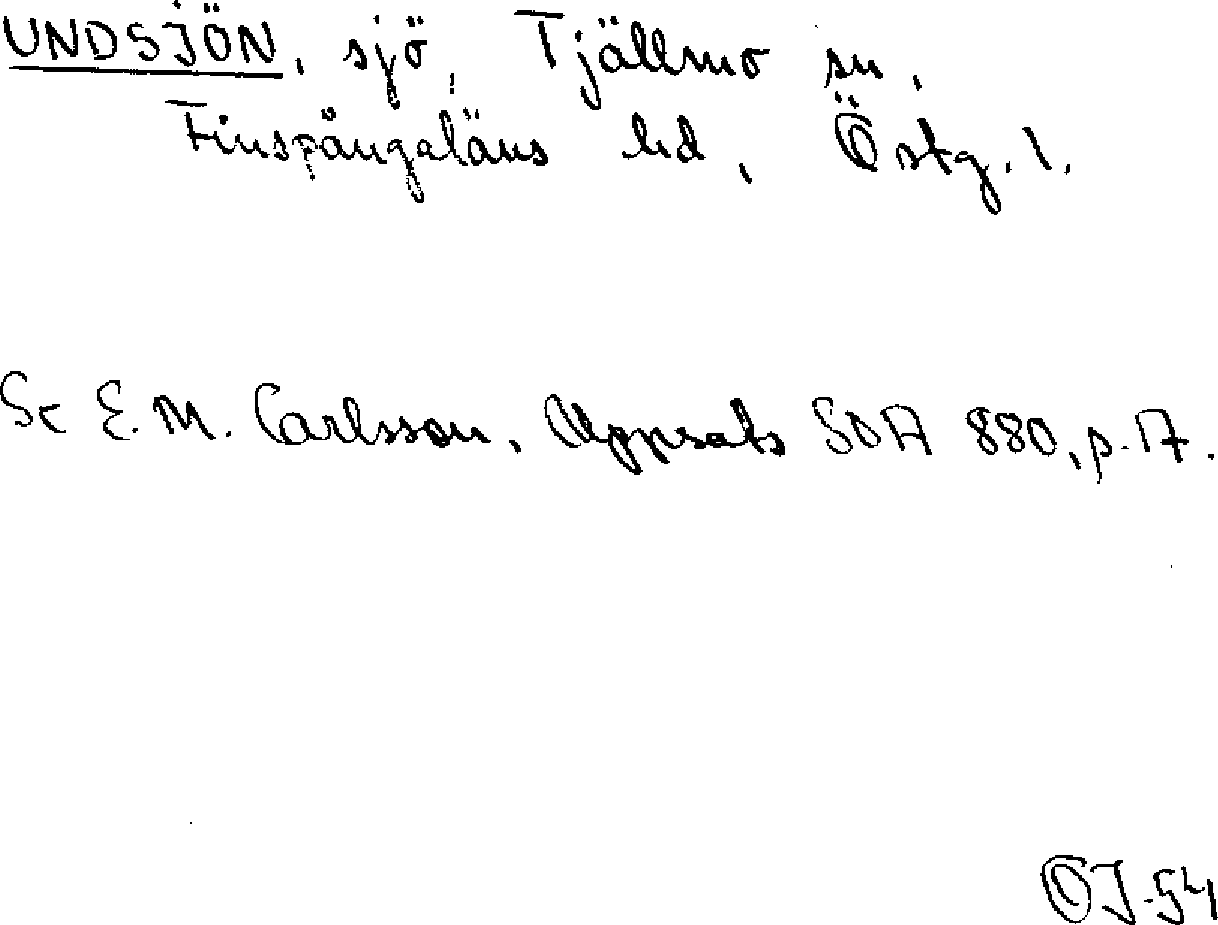 UNDSJÖN, sjö, Tjällmo sn,
Finspångaläns hd, Östg. l.
Se E.M. Carlsson, Uppsats SOA 880, p. 17.
OJ-54